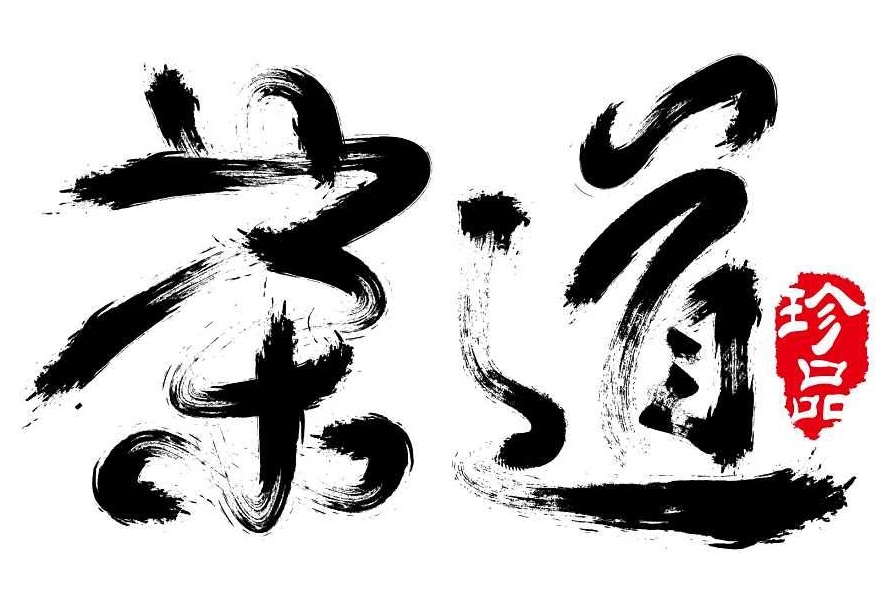 茶道
珍品